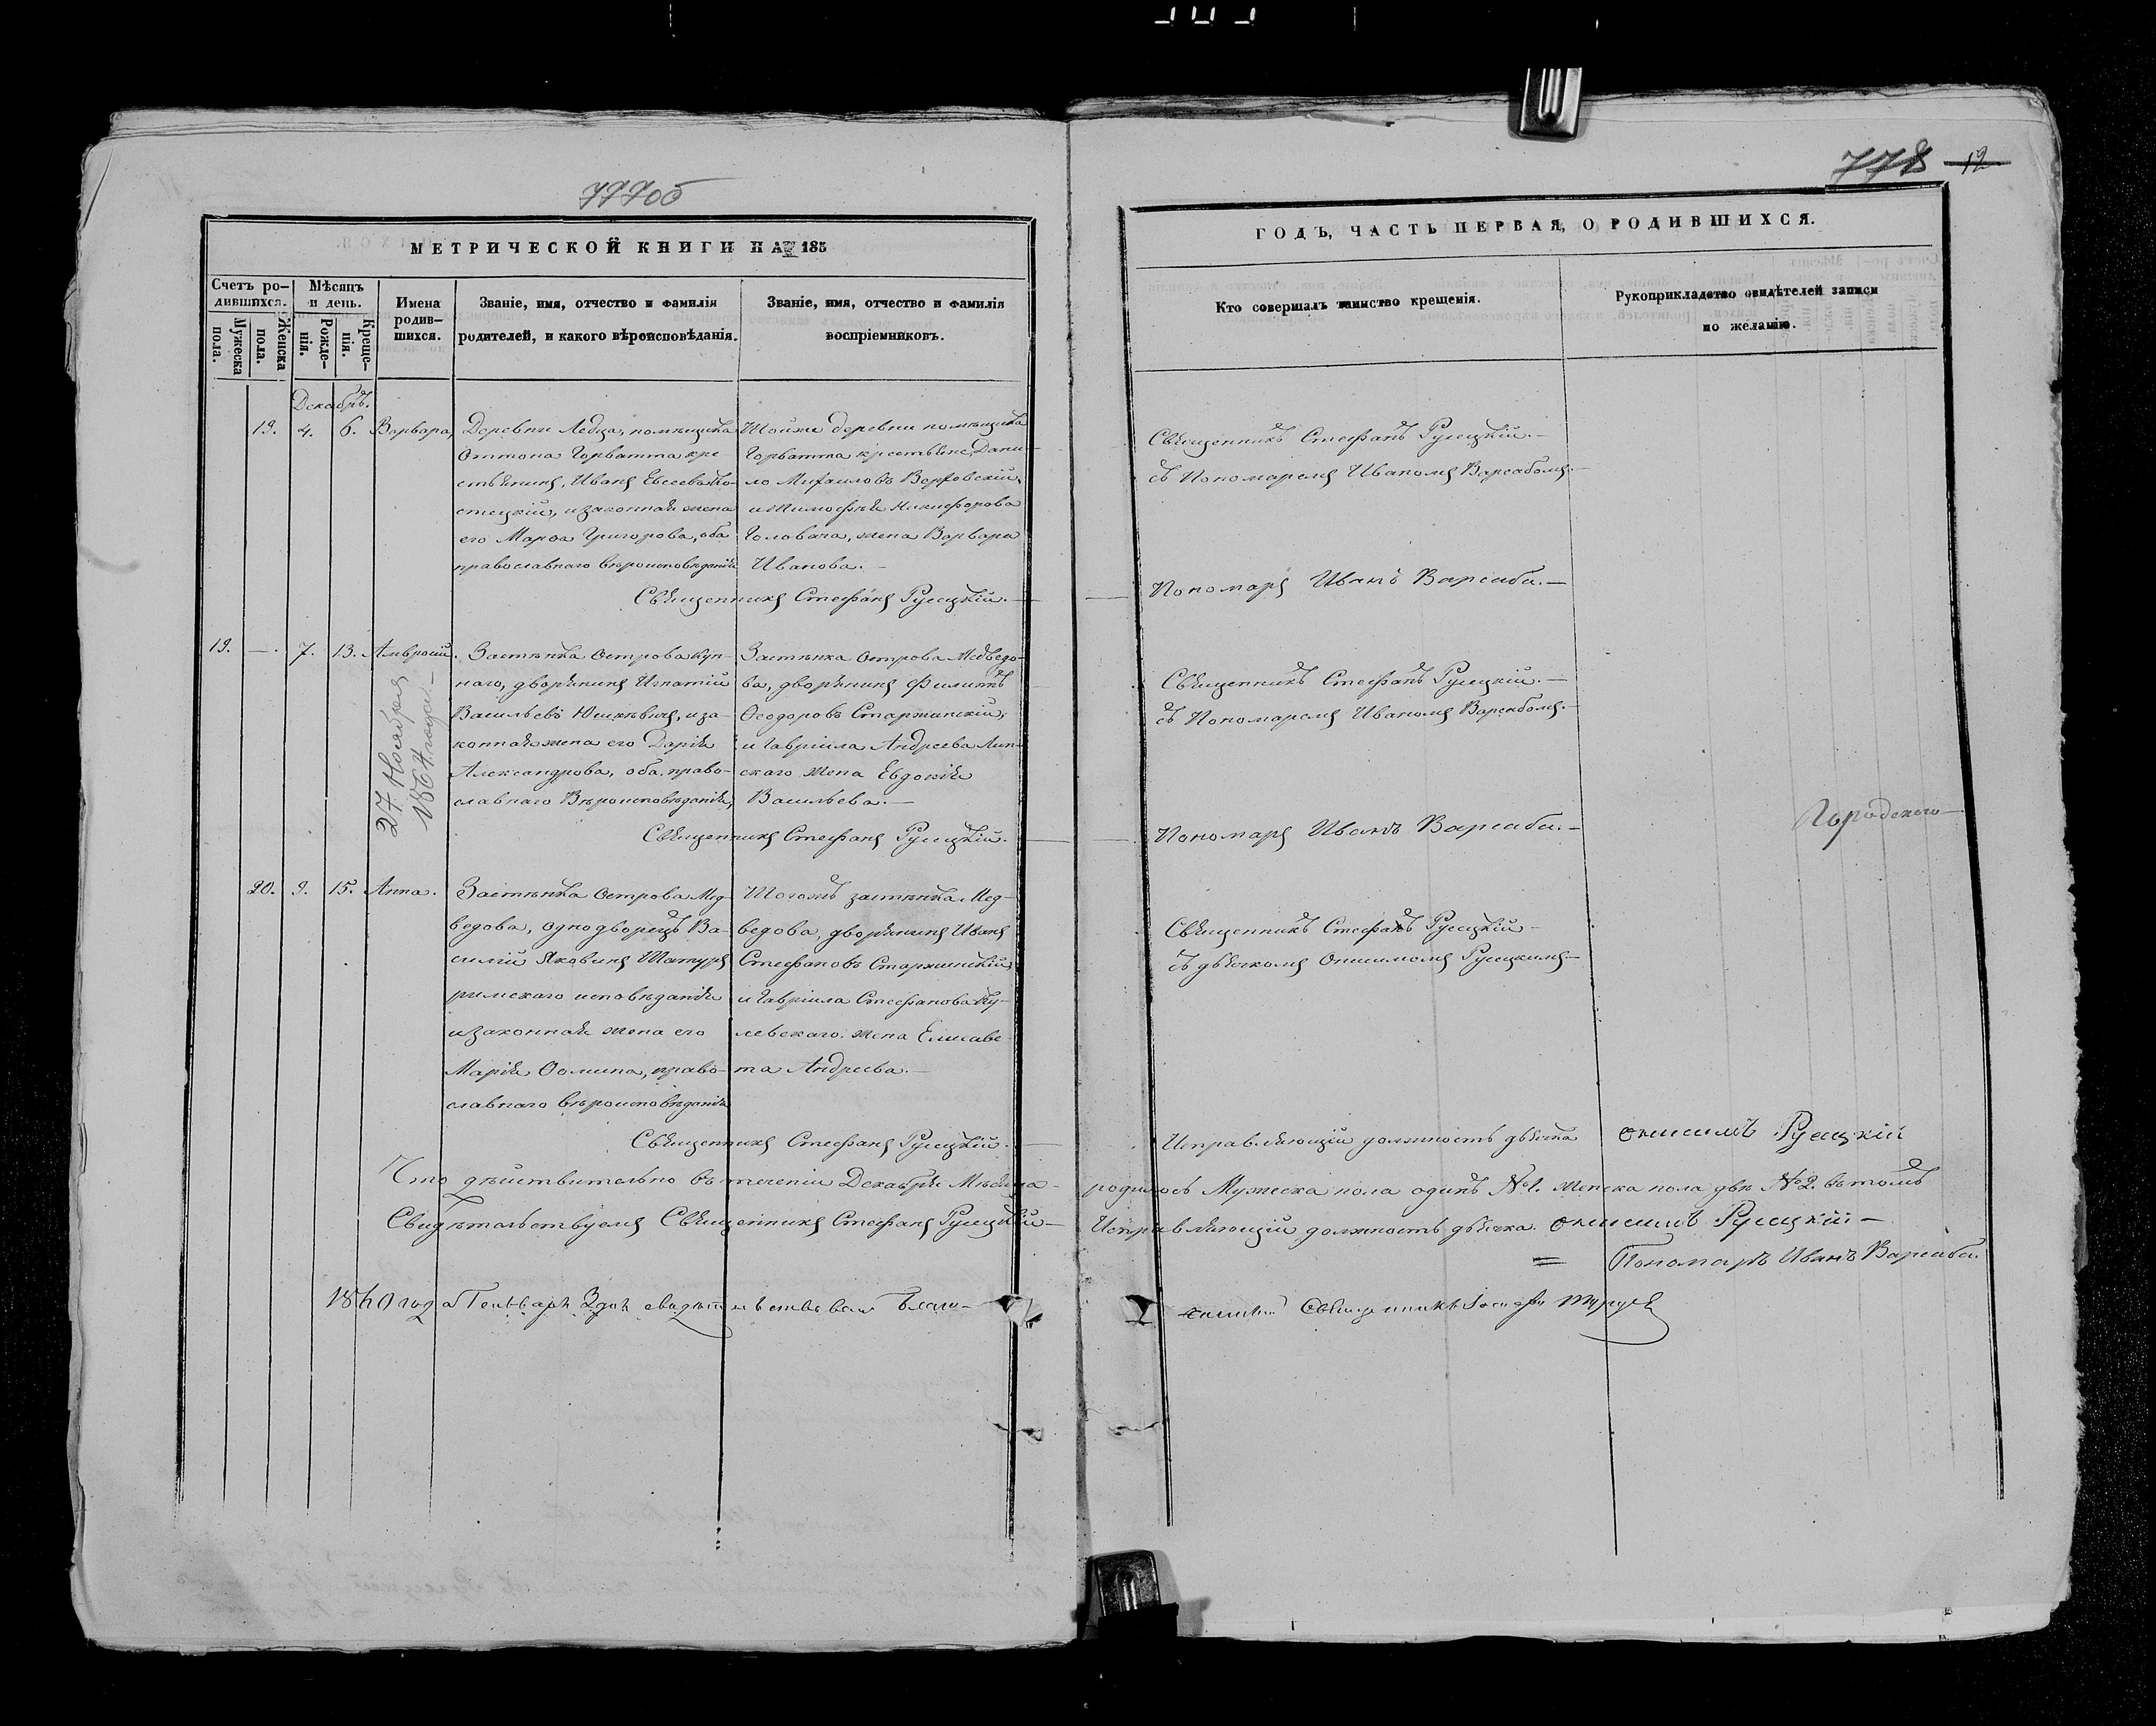 777об
МЕТРИЧЕСКОЙ КНИГИ НА 185
Счетъ ро-
дившихся.
Мужеска
пола.
Женска
пола.
Мѣсяцъ
и день.
Рожде-
нія.
Креще-
нія.
Имена
родив-
шихся.
Званіе, имя, отчество и фамилія
родителей, и какого вѣроисповѣданія.
Званіе, имя, отчество и фамилія
воспріемниковъ.
Декабрь.
19. 4. 6. Варвара,
Деревни Ледца, помѣщика
Оттона Горватта кре
стьянинъ, Иванъ Евсеевъ Ко-
стецкій, и законная жена
его Марѳа Григорова, оба
православнаго вѣроисповѣданія
Тойже деревни помѣщика
Горватта крестьяне, Дани-
ло Михаиловъ Ворховскій,
и Тимофѣя Никифорова
Головача, жена Варвара
Иванова.—
Священникъ Стефанъ Румцкій.—
19. —. 7. 13. Амвросій.
27 Ноября
1864 года.—
Застѣнка Острова Куп-
наго, дворянинъ Игнатій
Васильевъ Юшкѣвичъ, и за-
конная жена его Дарія
Александрова, оба право-
славнаго Вѣроисповѣданія,
Застѣнка Острова Медведо-
ва, дворянинъ Филипъ
Ѳеодоровъ Старжинскій,
и Гавріила Андреева Лип-
скаго жена Евдокія
Васильева.—
Священникъ Стефанъ Румцкій.
20. 9. 15. Анна.
Застѣнка Острова Мед-
ведова, однодворецъ Ва-
силій Яковинъ Шатура
римскаго исповѣданія
и законная жена его
Марія Ѳомина, право-
славнаго вѣроисповѣданія
Тогожъ застѣнка Мед-
ведова, дворянинъ Иванъ
Стефановъ Старжинскій
и Гавріила Стефанова Ку-
левскаго жена Елисаве
та Андреева.—
Священникъ Стефанъ Румцкій.
Что дѣйствительно въ теченіи Декабря Мѣсяца
Свидѣтельствуемъ Священникъ Стефанъ Румцкій—
1860 года Генваря 3 дня свидѣтельствовалъ Благо-
778 12
ГОДЪ, ЧАСТЬ ПЕРВАЯ, О РОДИВШИХСЯ.
Кто совершалъ таинство крещенія.
Рукоприкладство свидѣтелей записи
по желанію.
Священникъ Стефанъ Румцкій.—
съ Пономаремъ Иваномъ Варсабомъ.
Пономаръ Иванъ Варсаба.—
Священникъ Стефанъ Румцкій.—
съ Пономаремъ Иваномъ Варсабомъ.—
Городского
Пономаръ Иванъ Варсаба.—
Священникъ Стефанъ Румцкій—
съ дьячкомъ Онисимомъ Румцкимъ—
Исправляющій должность дьячка Онисимъ Румцкій
родилось Мужеска пола одинъ №1. женска пола двѣ №2. въ томъ
Исправляющій должность дьячка. Онисимъ Румцкій—
= Пономарь Иванъ Варсаба.
чинный Священникъ Іосифъ